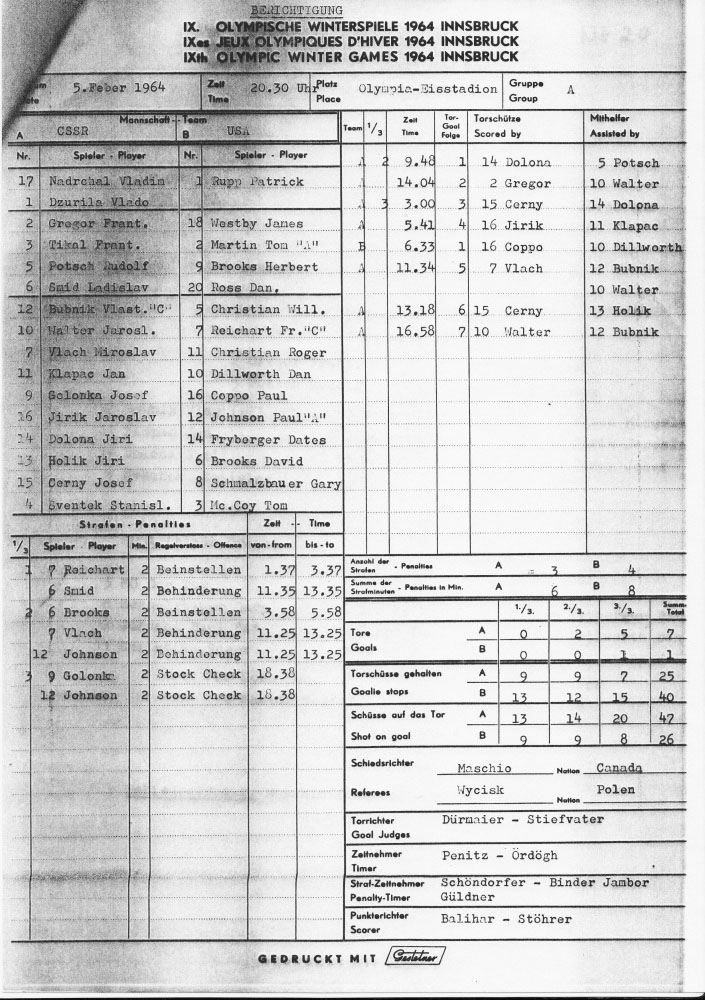 BERICHTIGUNG
IX. OLYMPISCHE WINTERSPIELE 1964 INNSBRUCK
IXes JEUX OLYMPIQUES D'HIVER 1964 INNSBRUCK
IXth OLYMPIC WINTER GAMES 1964 INNSBRUCK
5.Feber 1964 Zeit Time 20.30 Uhr Platz Place Olympia-Eisstadion Gruppe Group A
Mannschaft - Team
A CSSR B USA
Team 1/3 Zeit Time Tor- Goal Folge Torschütze Scored by Mithelfer Assisted by
Nr. Spieler - Player Nr. Spieler - Player
A 2 9.48 1 14 Dolona 5 Potsch
17 Nadrchal Vladim 1 Rupp Patrick
A 14.04 2 2 Gregor 10 Walter
1 Dzurila Vlado
A 3 3.00 3 15 Cerny 14 Dolona
2 Gregor Frant. 18 Westby James
A 5.41 4 16 Jirik 11 Klapac
3 Tikal Frant. 2 Martin Tom "A"
B 6.33 1 16 Coppo 10 Dillworth
5 Potsch Rudolf 9 Brooks Herbert
A 11.34 5 7 Vlach 12 Bubnik
6 Smid Ladislav 20 Ross Dan.
10 Walter
12 Bubnik Vlast."C" 5 Christian Will.
A 13.18 6 15 Cerny 13 Holik
10 Walter Jarosl. 7 Reichart Fr."C"
A 16.58 7 10 Walter 12 Bubnik
7 Vlach Miroslav 11 Christian Roger
11 Klapac Jan 10 Dillworth Dan
9 Golonka Josef 16 Coppo Paul
16 Jirik Jaroslav 12 Johnson Paul"A"
14 Dolona Jiri 14 Fryberger Dates
13 Holik Jiri 6 Brooks David
15 Cerny Josef 8 Schmalzbauer Gary
4 Sventek Stanisl. 3 Mc.Coy Tom
Strafen - Penalties Zeit - Time
1/3 Spieler - Player Min. Regelverstoss - Offence von-from bis-to
1 7 Reichart 2 Beinstellen 1.37 3.37
6 Smid 2 Behinderung 11.35 13.35
2 6 Brooks 2 Beinstellen 3.58 5.58
7 Vlach 2 Behinderung 11.25 13.25
12 Johnson 2 Behinderung 11.25 13.25
3 9 Golonka 2 Stock Check 18.38
12 Johnson 2 Stock Check 18.38
Anzahl der Strafen - Penalties A 3 B 4
Summe der Strafminuten - Penalties in Min. A 6 B 8
1./3. 2./3. 3./3. Summ. Total
Tore Goals A 0 2 5 7
B 0 0 1 1
Torschüsse gehalten A 9 9 7 25
Goalie stops B 13 12 15 40
Schüsse auf das Tor A 13 14 20 47
Shot on goal B 9 9 8 26
Schiedsrichter Maschio Nation Canada
Referees Wycisk Nation Polen
Torrichter Dürmaier - Stiefvater
Goal Judges
Zeitnehmer Penitz - Ördögh
Timer
Straf-Zeitnehmer Schöndorfer - Binder Jambor
Penalty-Timer Güldner
Punkterichter Balihar - Stöhrer
Scorer
GEDRUCKT MIT Gestetner